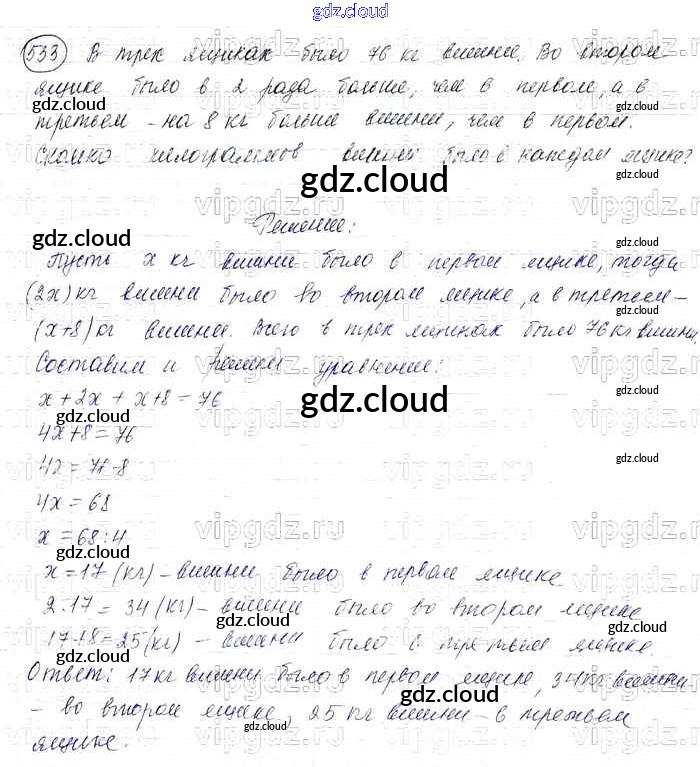 gdz.cloud
533 В трех ящиках было 76 кг вишни. Во втором
ящике было в 2 раза больше, чем в первом, а в
gdz.cloud
третьем - на 8 кг больше вишни, чем в первом.
Сколько килограммов вишни было в каждом ящике?
gdz.cloud
Решение:
gdz.cloud
Пусть x кг вишни было в первом ящике, тогда
(2x) кг вишни было во втором ящике, а в третьем -
(x+8) кг вишни. Всего в трех ящиках было 76 кг вишни.
Составим и решим уравнение:
x + 2x + x+8 = 76
gdz.cloud
4x+8=76
4x = 76-8
gdz.cloud
4x = 68
x = 68:4
gdz.cloud
x = 17 (кг) - вишни было в первом ящике
2·17 = 34 (кг) - вишни было во втором ящике
gdz.cloud
17+8=25 (кг) - вишни было в третьем ящике
gdz.cloud
Ответ: 17 кг вишни было в первом ящике, 34 кг вишни
gdz.cloud
- во втором ящике, 25 кг вишни - в третьем
ящике.
gdz.cloud